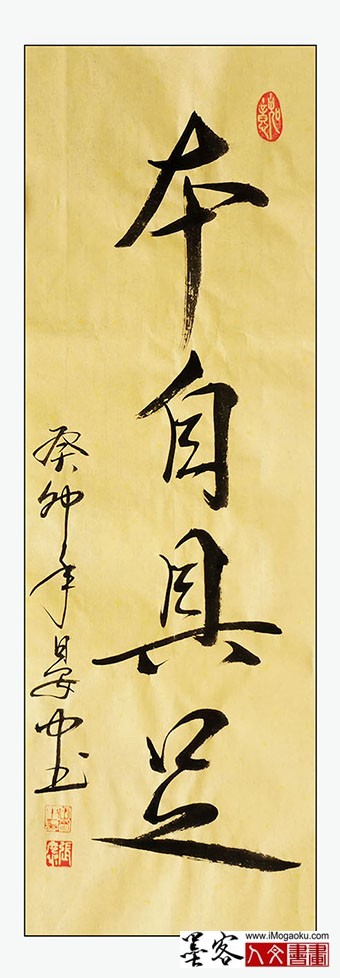 如意
本自具足
癸卯年晏
墨客
www.iMogaoku.com
人文書畫